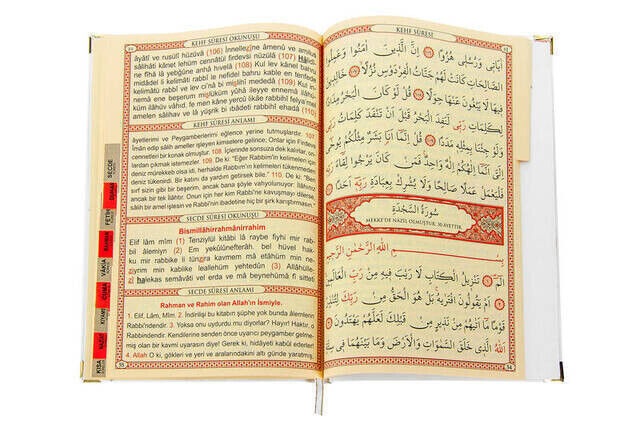 KEHF SÛRESİ OKUNUŞU
âyâtî ve rusulî hüzüvâ (106) İnnellezîne âmenû ve amilus
sâlihâti kânet lehüm cennâtül firdevsi nüzülâ (107) Hâlidî-
ne fîhâ lâ yebğûne anhâ hıvelâ (108) Kul lev kânel bahru
midâdel li kelimâti rabbî le nefidel bahru kable en tenfede
kelimâtü rabbî ve lev ci'nâ bi mislihî mededâ (109) Kul in-
nemâ ene beşerum mislüküm yûhâ ileyye ennemâ ilâhü-
küm ilâhüv vâhıd, fe men kâne yercû likâe rabbihî felya'mel
amelen sâlihav ve lâ yüşrik bi ıbâdeti rabbihî ehadâ (110)
KEHF SÛRESİ ANLAMI
âyetlerimi ve Peygamberlerimi eğlence yerine tutmuşlardır. 107.
İman edip sâlih ameller işleyen kimselere gelince; Onlar için Firdevs
cennetleri bir konak olmuştur. 108. İçlerinde sonsuza dek kalırlar, on-
lardan çıkmak istemezler. 109. De ki: "Eğer Rabbimin kelimeleri için
deniz mürekkep olsa idi, herhalde Rabbimin kelimeleri tükenmeden
deniz tükenirdi. Bir katını da yardım getirsek bile." 110. De ki: "Ben
sırf sizin gibi bir beşerim, ancak bana şöyle vahyolunuyor: İlâhınız
ancak bir tek ilâhtır. Onun için her kim Rabbi'ne kavuşmayı dilerse
SECDE SÛRESİ OKUNUŞU
Bismillâhirrahmânirrahîm
Elif lâm mîm (1) Tenzîylül kitâbi lâ raybe fîyhi mir rab-
bil âlemîyn (2) Em yekûlûnefterâh, bel hüvel hak-
ku mir rabbike li tünzira kavmem mâ etâhüm min ne-
ziyrim min kablike leallehüm yehtedûn (3) Allâhülle-
zî halekas semâvâti vel erda ve mâ beynehümâ fî sitteti
SECDE SÛRESİ ANLAMI
Rahman ve Rahim olan Allah'ın İsmiyle.
1. Elif, Lâm, Mîm. 2. İndirilişi bu kitabın şüphe yok bunda âlemlerin
Rabbi'ndendir. 3. Yoksa onu uydurdu mu diyorlar? Hayır! Haktır, o
Rabbindendir. Kendilerine senden önce uyarıcı peygamber gelme-
miş olan bir kavmi uyarasın diye! Gerek ki, hidâyeti kabûl ederler!
4. Allah O ki, gökleri ve yeri ve aralarındaki altı günde yaratmış,
SECDE
FETİH
RAHMAN
VAKIA
CUMA
KIYAME
KISA
KEHF SÛRESİ
اٰيَاتٖي وَرُسُلٖي هُزُوًا ﴿١٠٦﴾ اِنَّ الَّذٖينَ اٰمَنُوا وَعَمِلُوا
الصَّالِحَاتِ كَانَتْ لَهُمْ جَنَّاتُ الْفِرْدَوْسِ نُزُلًا ﴿١٠٧﴾ خَالِدٖينَ
فٖيهَا لَا يَبْغُونَ عَنْهَا حِوَلًا ﴿١٠٨﴾ قُلْ لَوْ كَانَ الْبَحْرُ مِدَادًا
لِكَلِمَاتِ رَبّٖي لَنَفِدَ الْبَحْرُ قَبْلَ اَنْ تَنْفَدَ كَلِمَاتُ رَبّٖي
وَلَوْ جِئْنَا بِمِثْلِهٖ مَدَدًا ﴿١٠٩﴾ قُلْ اِنَّمَا اَنَا بَشَرٌ مِثْلُكُمْ يُوحٰى
اِلَيَّ اَنَّمَا اِلٰهُكُمْ اِلٰهٌ وَاحِدٌ فَمَنْ كَانَ يَرْجُوا لِقَاءَ رَبِّهٖ
فَلْيَعْمَلْ عَمَلًا صَالِحًا وَلَا يُشْرِكْ بِعِبَادَةِ رَبِّهٖ اَحَدًا ﴿١١٠﴾
سُورَةُ السَّجْدَةِ
MEKKE'DE NAZİL OLMUŞTUR. 30 AYETTİR.
بِسْمِ اللّٰهِ الرَّحْمٰنِ الرَّحٖيمِ
الٓمٓ ﴿١﴾ تَنْزٖيلُ الْكِتَابِ لَا رَيْبَ فٖيهِ مِنْ رَبِّ الْعَالَمٖينَ ﴿٢﴾
اَمْ يَقُولُونَ افْتَرٰيهُ بَلْ هُوَ الْحَقُّ مِنْ رَبِّكَ لِتُنْذِرَ
قَوْمًا مَا اَتٰيهُمْ مِنْ نَذٖيرٍ مِنْ قَبْلِكَ لَعَلَّهُمْ يَهْتَدُونَ ﴿٣﴾
اَللّٰهُ الَّذٖي خَلَقَ السَّمٰوَاتِ وَالْاَرْضَ وَمَا بَيْنَهُمَا فٖي